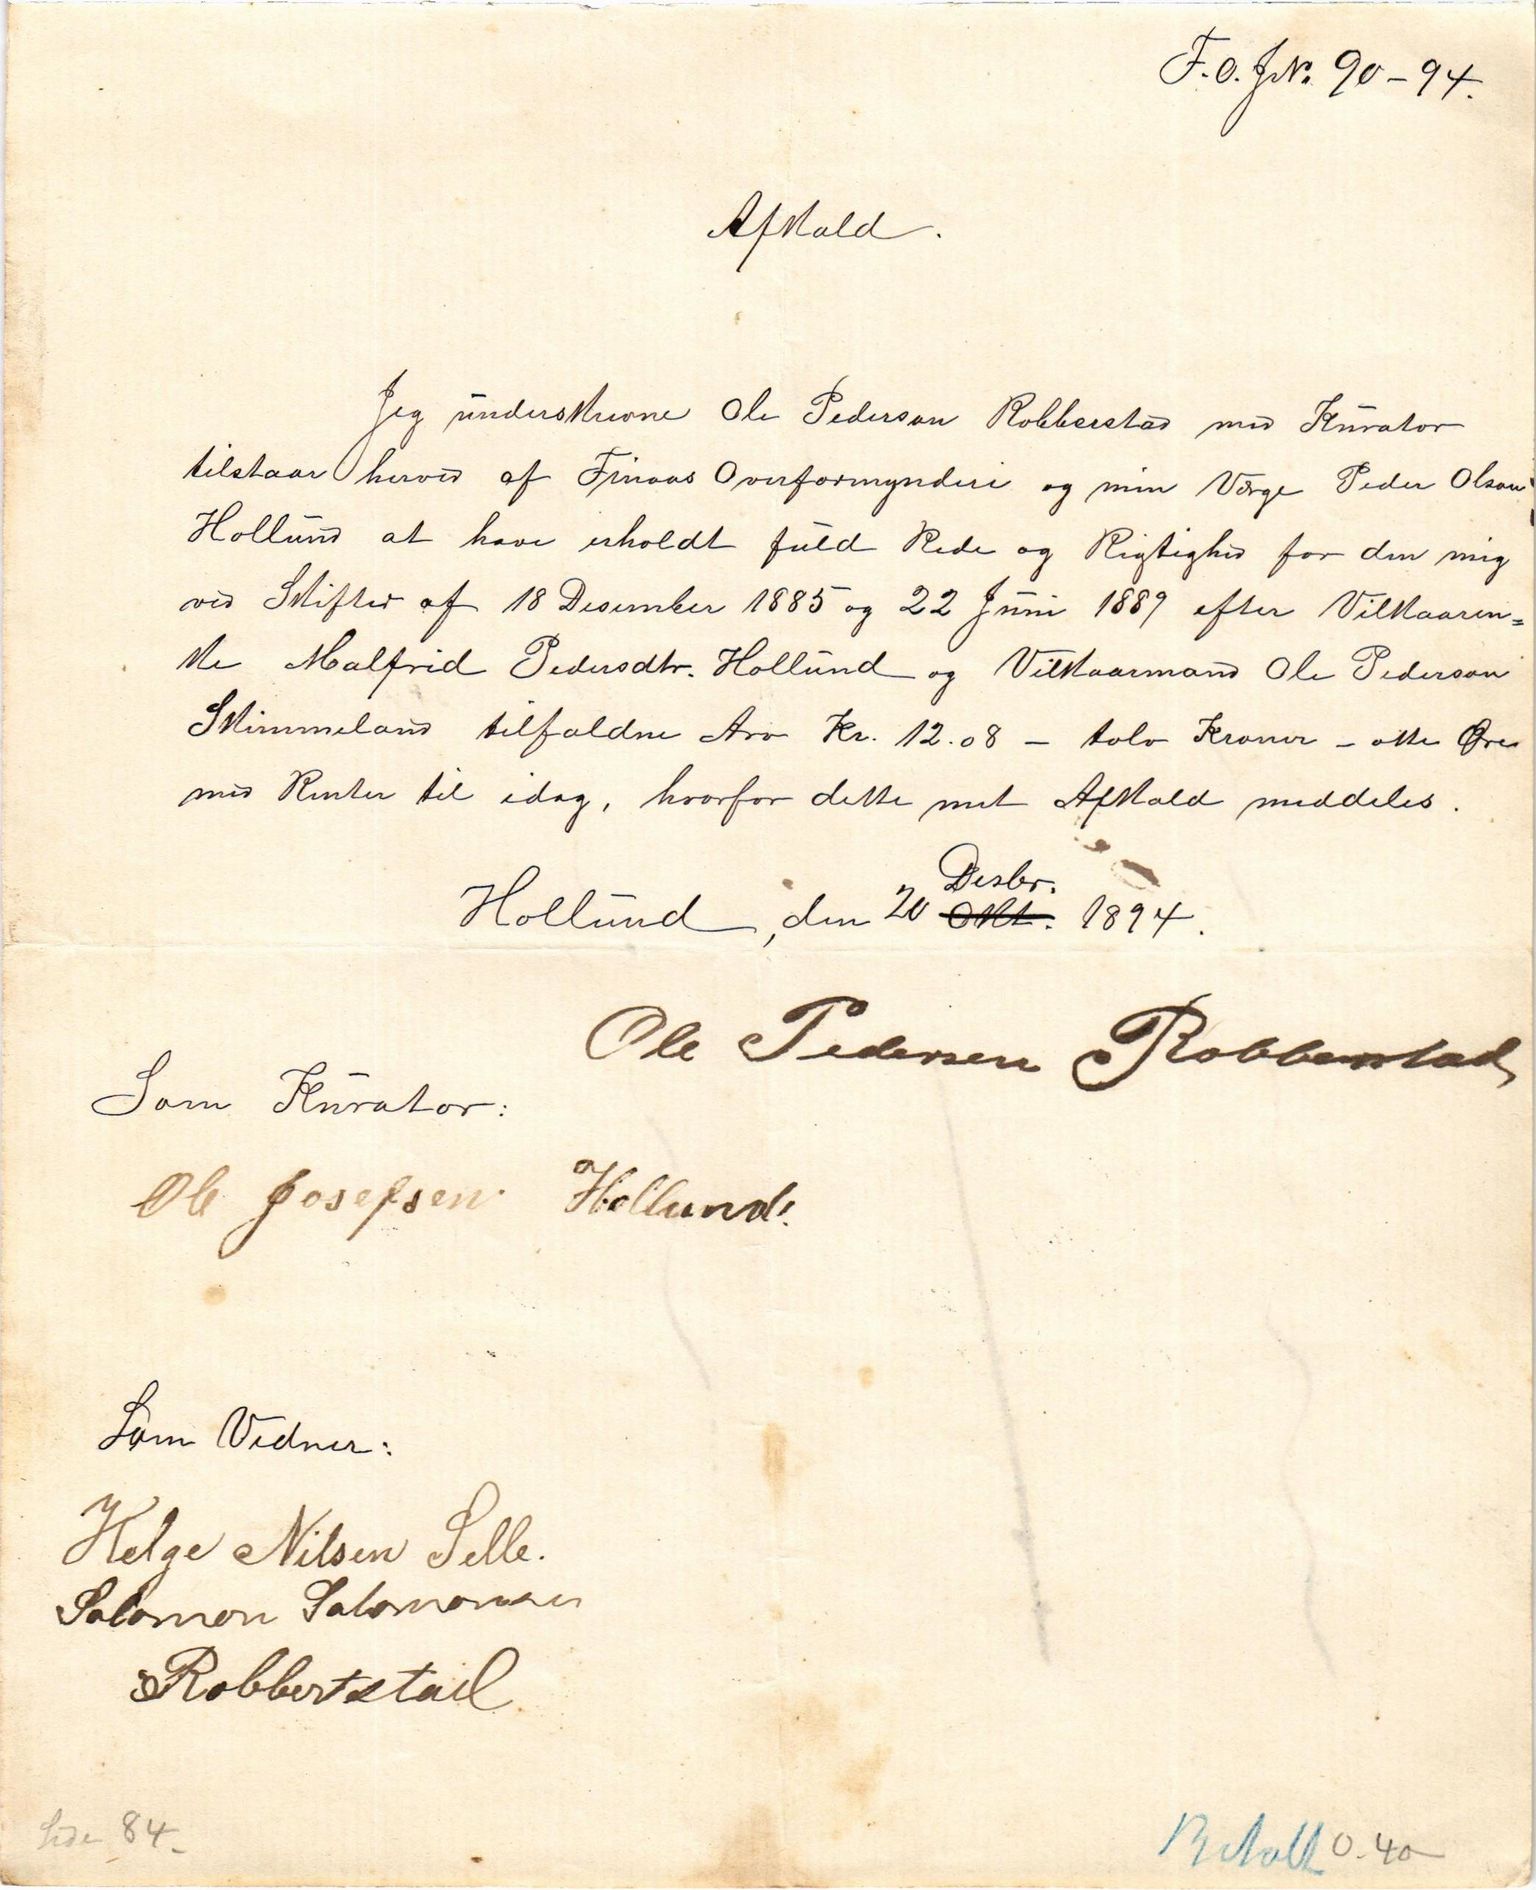 F.O.J.Nr. 90-94.
Afkald.
Jeg underskrevne Ole Pederson Robberstad med Kurator
tilstaar herved af Finaas Overformynderi og min Værge Peder Olson
Hollund at have erholdt fuld Rede og Rigtighed for den mig
ved Skifter af 18 Desember 1885 og 22 Juni 1889 efter Vilkaaren=
ke Malfrid Pedersdtr. Hollund og Vilkaarmand Ole Pederson
Skimmeland tilfaldne Arv Kr. 12.08 - tolv Kroner - otte Øre
med Renter til idag, hvorfor dette mit Afkald meddeles.
Hollund, den 20 Desbr. Okt. 1894.
Ole Pedersen Robberstad
Som Kurator:
Ole Josefsen Hollund.
Som Vidner:
Helge Nilsen Selle.
Salomon Salomonsen
Robberstad
Side 84.
Betalt 0.40